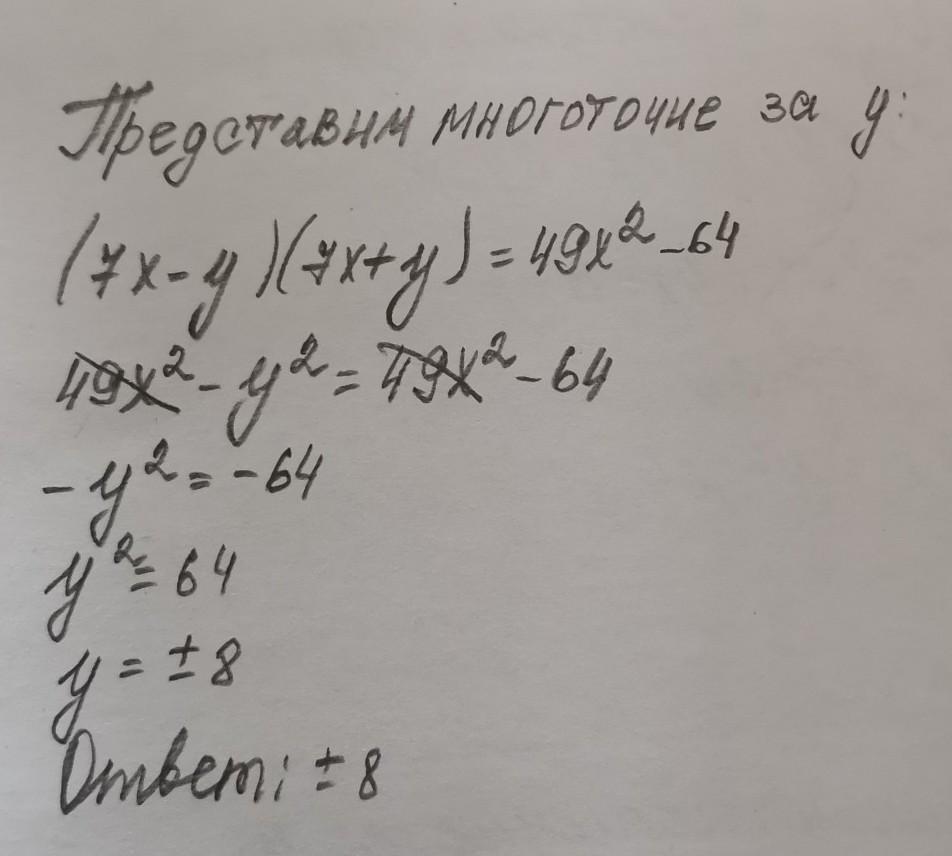 Представим многоточие за y:
(7x-y)(7x+y)=49x²-64
49x²-y²=49x²-64
-y²=-64
y²=64
y=±8
Ответ: ±8